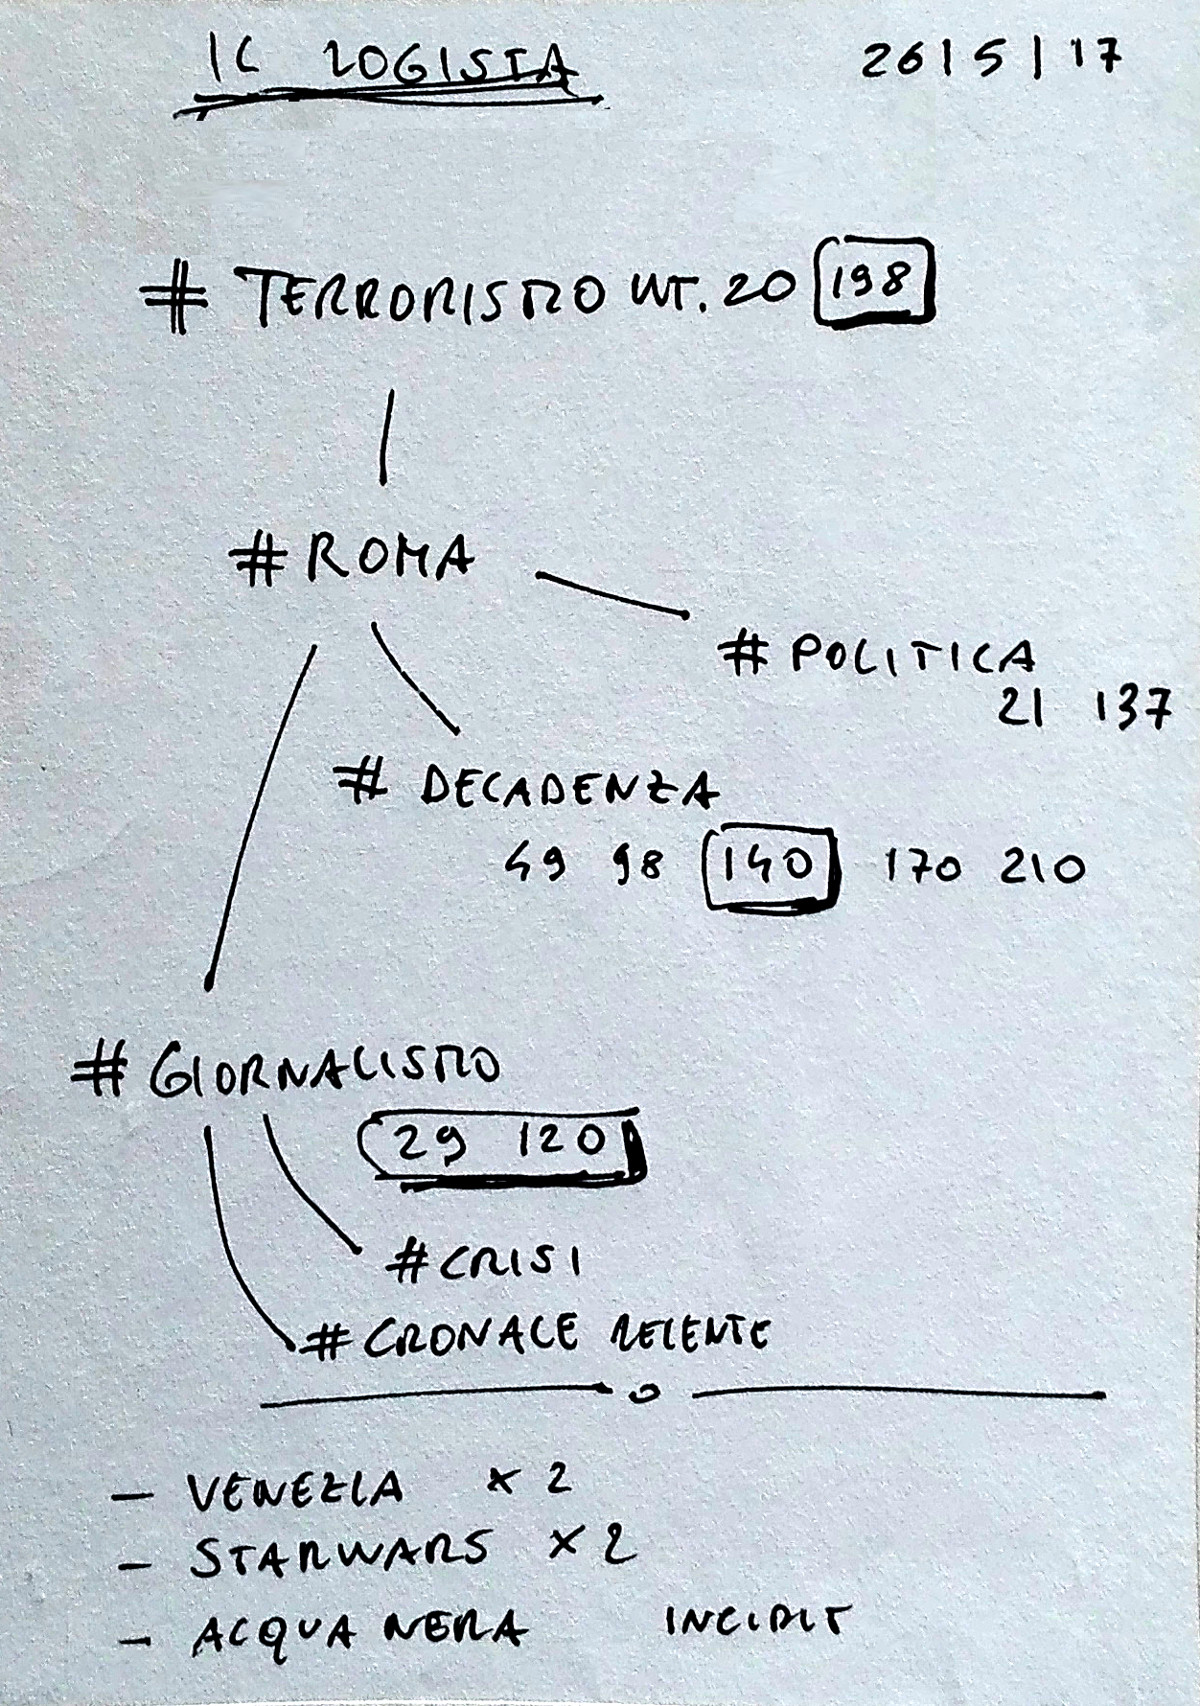 IL LOGISTA 26/5/17
# TERRORISMO INT. 20 198
# ROMA
# POLITICA
21 137
# DECADENZA
49 98 140 170 210
# GIORNALISMO
29 120
# CRISI
# CRONACE RECENTE
- VENEZIA x 2
- STARWARS x 2
- ACQUA NERA